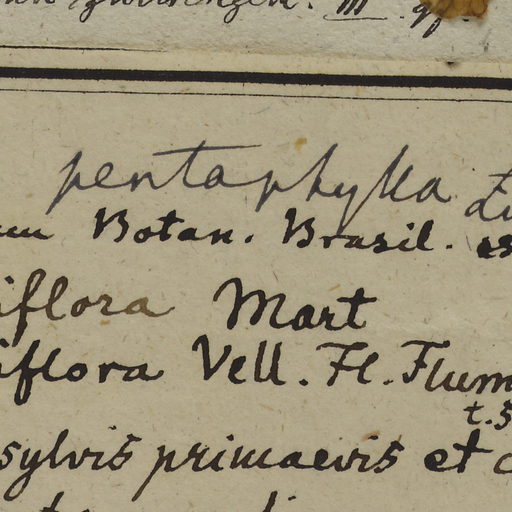 III.
pentaphylla
Botan. Brasil. es
iflora Mart
iflora Vell. Fl. Flum
t. 5
sylvis primaevis et